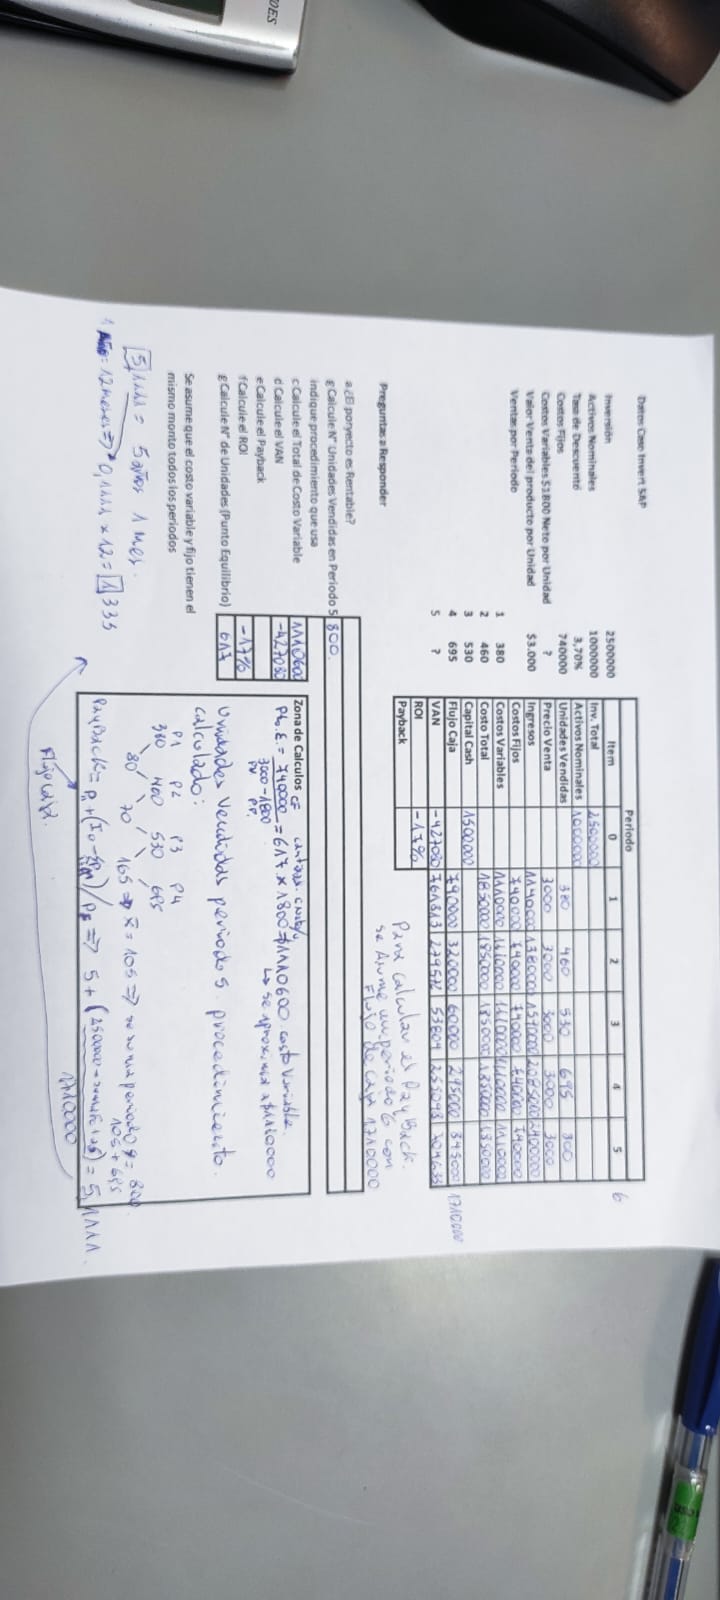 Datos Caso Invert SAP
Inversión 2500000
Activos Nominales 1000000
Tasa de Descuento 3,70%
Costos Fijos 740000
Costos Variables $1800 Neto por Unidad ?
Valor Venta del producto por Unidad $3.000
Ventas por Periodo
1 380
2 460
3 530
4 695
5 ?
Periodo
Item 0 1 2 3 4 5 6
Inv. Total 2500000
Activos Nominales 1000000
Unidades Vendidas 380 460 530 695 800
Precio Venta 3000 3000 3000 3000 3000
Ingresos 1140000 1380000 1570000 2085000 2400000
Costos Fijos 740000 740000 740000 740000 740000
Costos Variables 1110000 1110000 1110000 1110000 1110000
Costo Total 1850000 1850000 1850000 1850000 1850000
Capital Cash 1500000
Flujo Caja 790000 320000 60000 295000 345000 1710000
VAN -427080 761813 279572 53804 255098
ROI -17%
Payback
Para calcular el PayBack.
se Asume un periodo 6 con
Flujo de caja 1710000
Preguntas a Responder
a ¿El poryecto es Rentable?
g Calcule N° Unidades Vendidas en Periodo 5 800.
indique procedimiento que usa
c Calcule el Total de Costo Variable 1110600
d Calcule el VAN -427080
e Calcule el Payback
f Calcule el ROI -17%
g Calcule N° de Unidades (Punto Equilibrio) 617
Se asume que el costo variable y fijo tienen el
mismo monto todos los periodos
5,1111 = 5 años 1 mes.
1 Año = 12 meses => 0,1111 x 12 = 1,333
Zona de Calculos CF
Pto. E. = 740000 = 617 x 1800 = $1110600 costo Variable.
3000 - 1800
↳ se aproxima a $1110000
Unidades Vendidas periodo 5 procedimiento
calculado:
P1 P2 P3 P4
380 460 530 695
80 70 165 => x̄ = 105 => 800
105 + 695
PayBack = => 5 + = 5,1111.
1710000
Flujo caja.